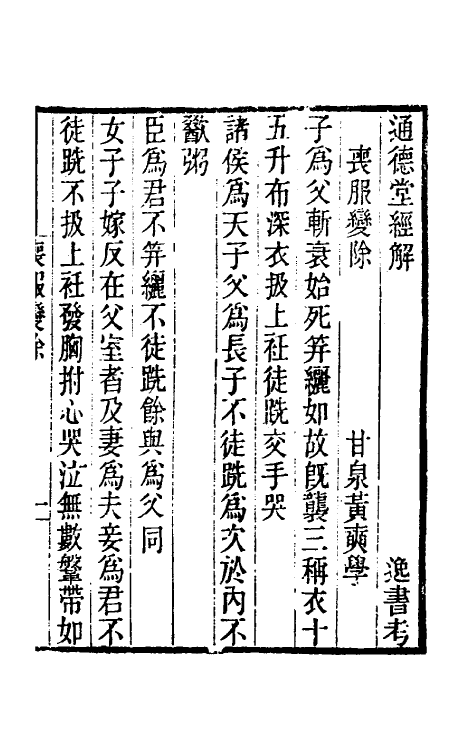 通德堂經解　逸書考
喪服變除　甘泉黃奭學
子爲父斬衰始死笄纚如故旣襲三稱衣十
五升布深衣扱上衽徒跣交手哭
諸侯爲天子父爲長子不徒跣爲次於內不
歠粥
臣爲君不笄纚不徒跣餘與爲父同
女子子嫁反在父室者及妻爲夫妾爲君不
徒跣不扱上衽發胸拊心哭泣無數鞶帶如
喪服變除